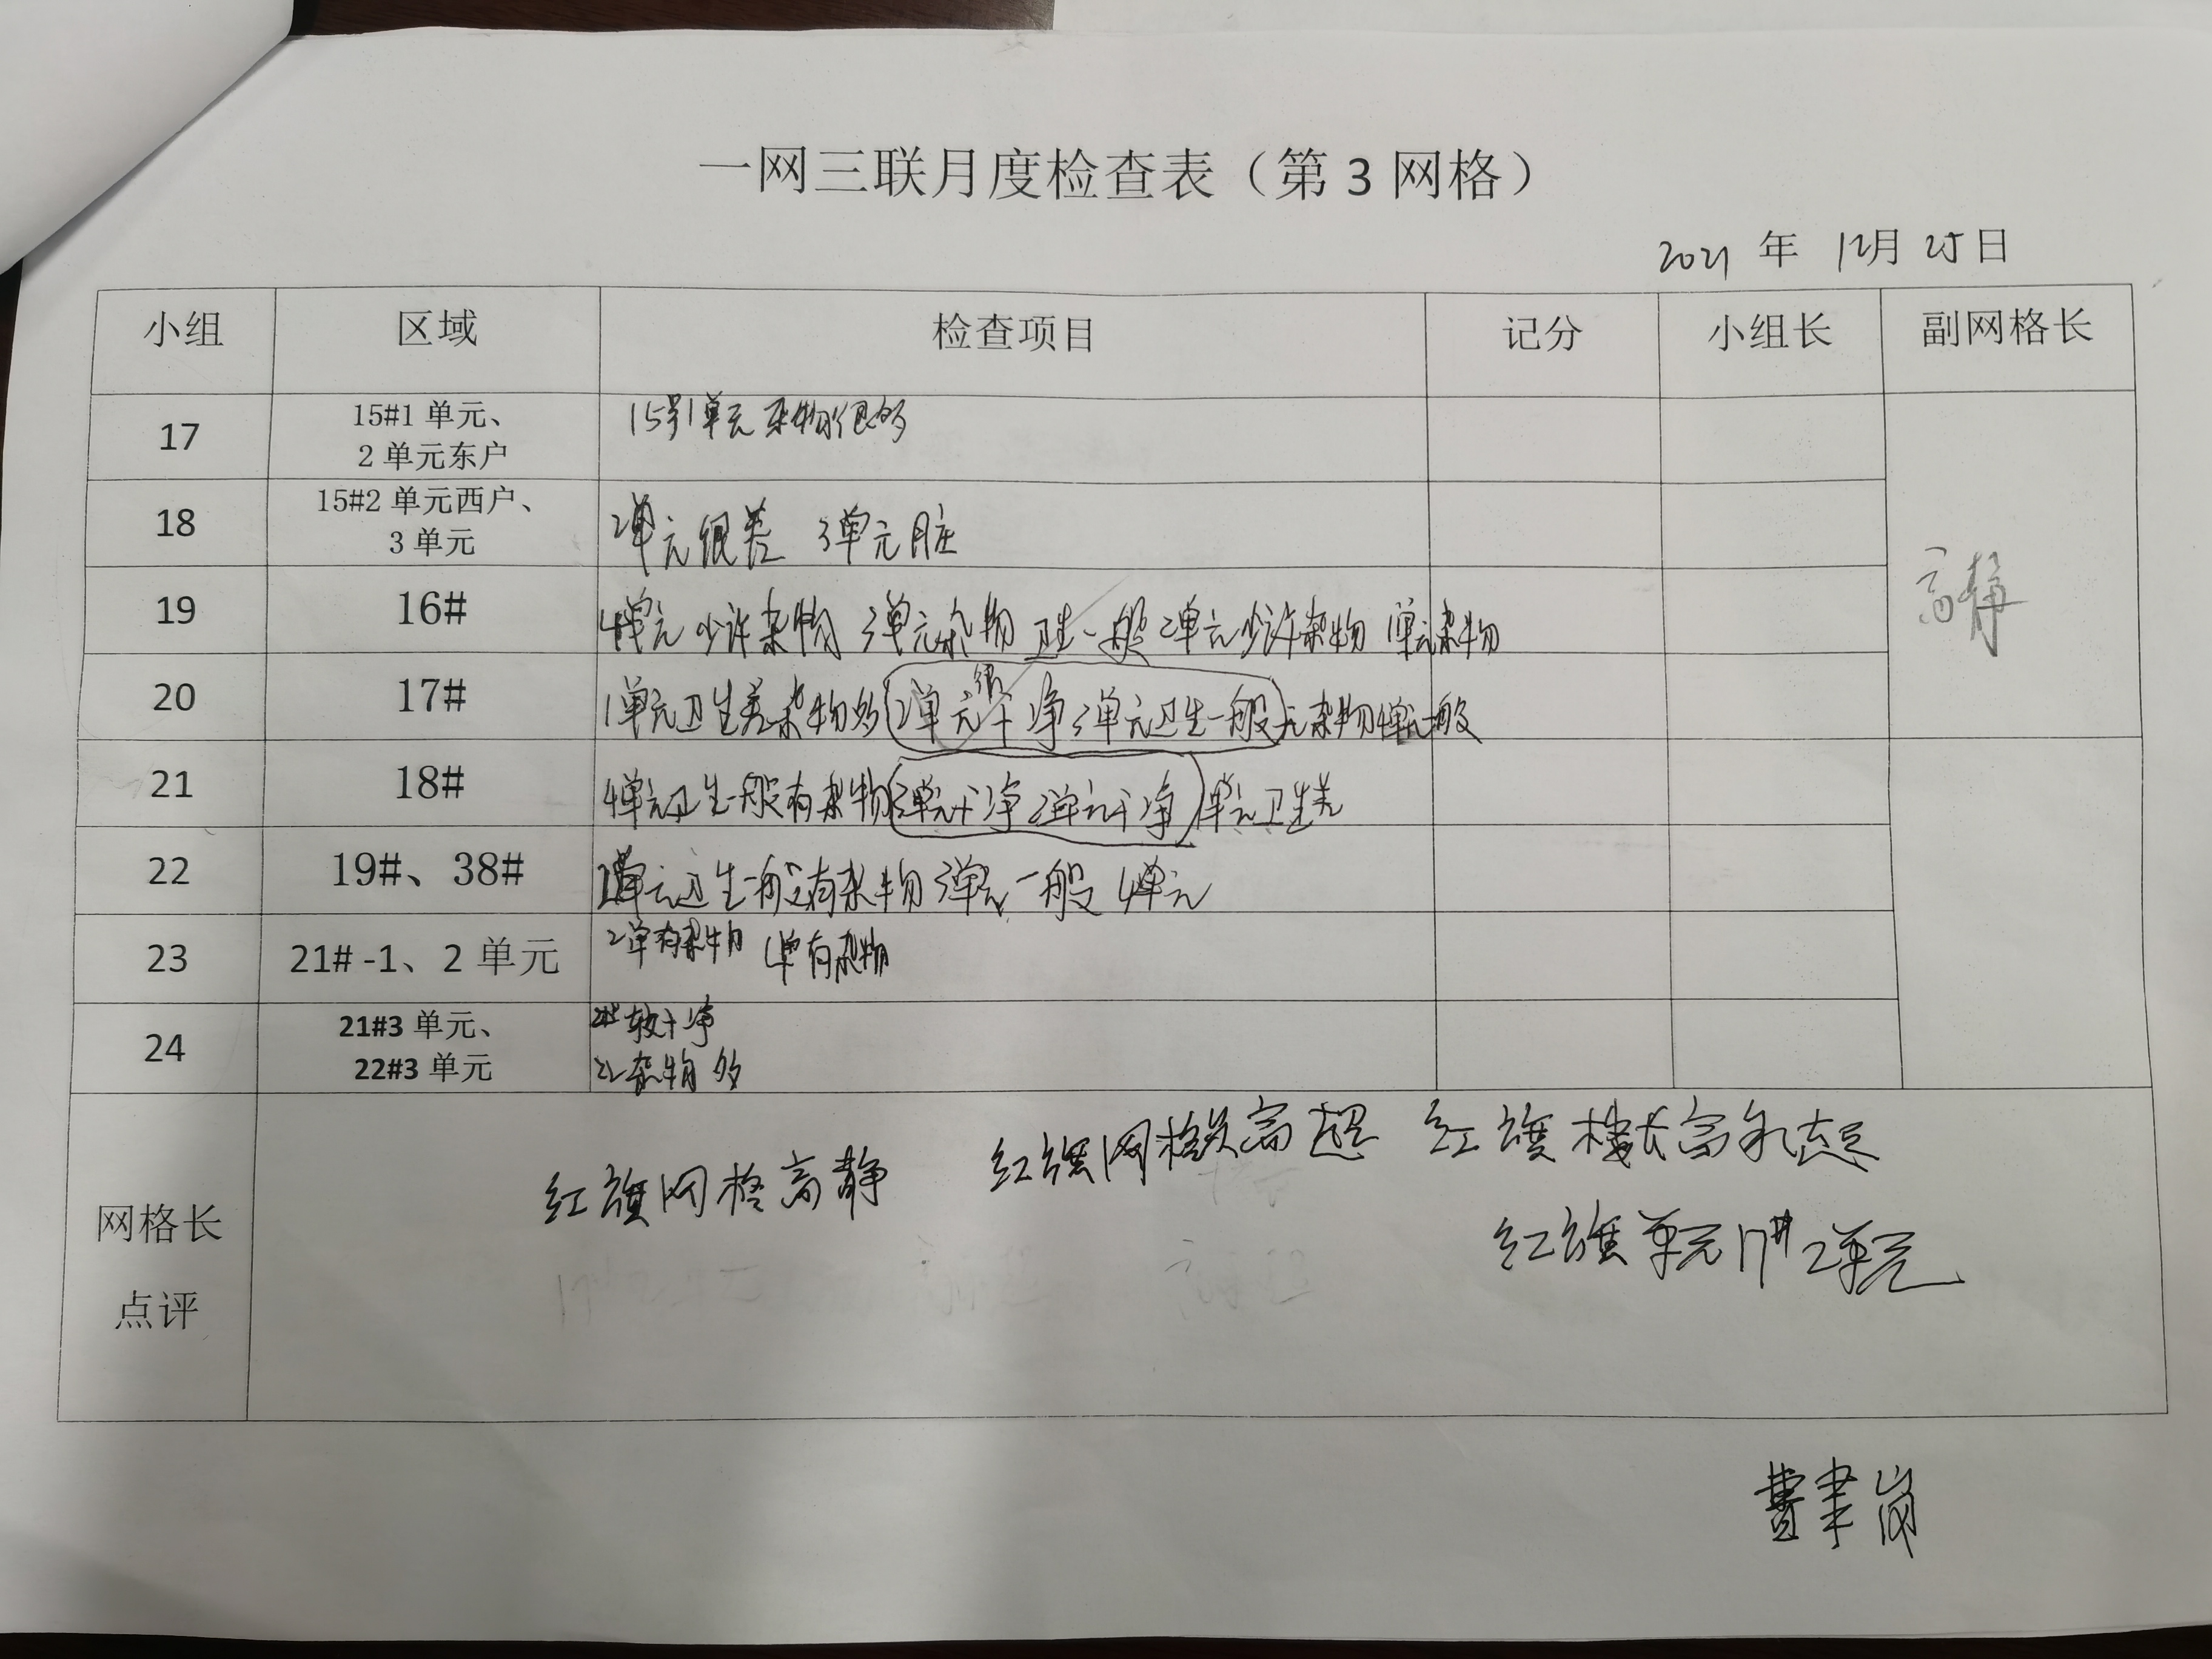 一网三联月度检查表（第3网格）
2021年12月25日
小组 区域 检查项目 记分 小组长 副网格长
17 15#1单元、2单元东户 15号1单元杂物很多
18 15#2单元西户、3单元 2单元很差 3单元脏
高静
19 16# 4单元少许杂物 3单元杂物 卫生一般 2单元少许杂物 1单元杂物
20 17# 1单元卫生差杂物多 2单元很干净 3单元卫生一般 无杂物 4单元一般
21 18# 4单元卫生一般有杂物 3单元干净 2单元干净 1单元卫生差
22 19#、38# 单元卫生一般没有杂物 3单元一般 4单元
23 21#-1、2单元 2单有杂物 1单有杂物
24 21#3单元、22#3单元 21#较干净
22杂物多
网格长点评
红旗网格高静 红旗网格员高超 红旗楼长高永
红旗单元17#2单元
曹聿岗